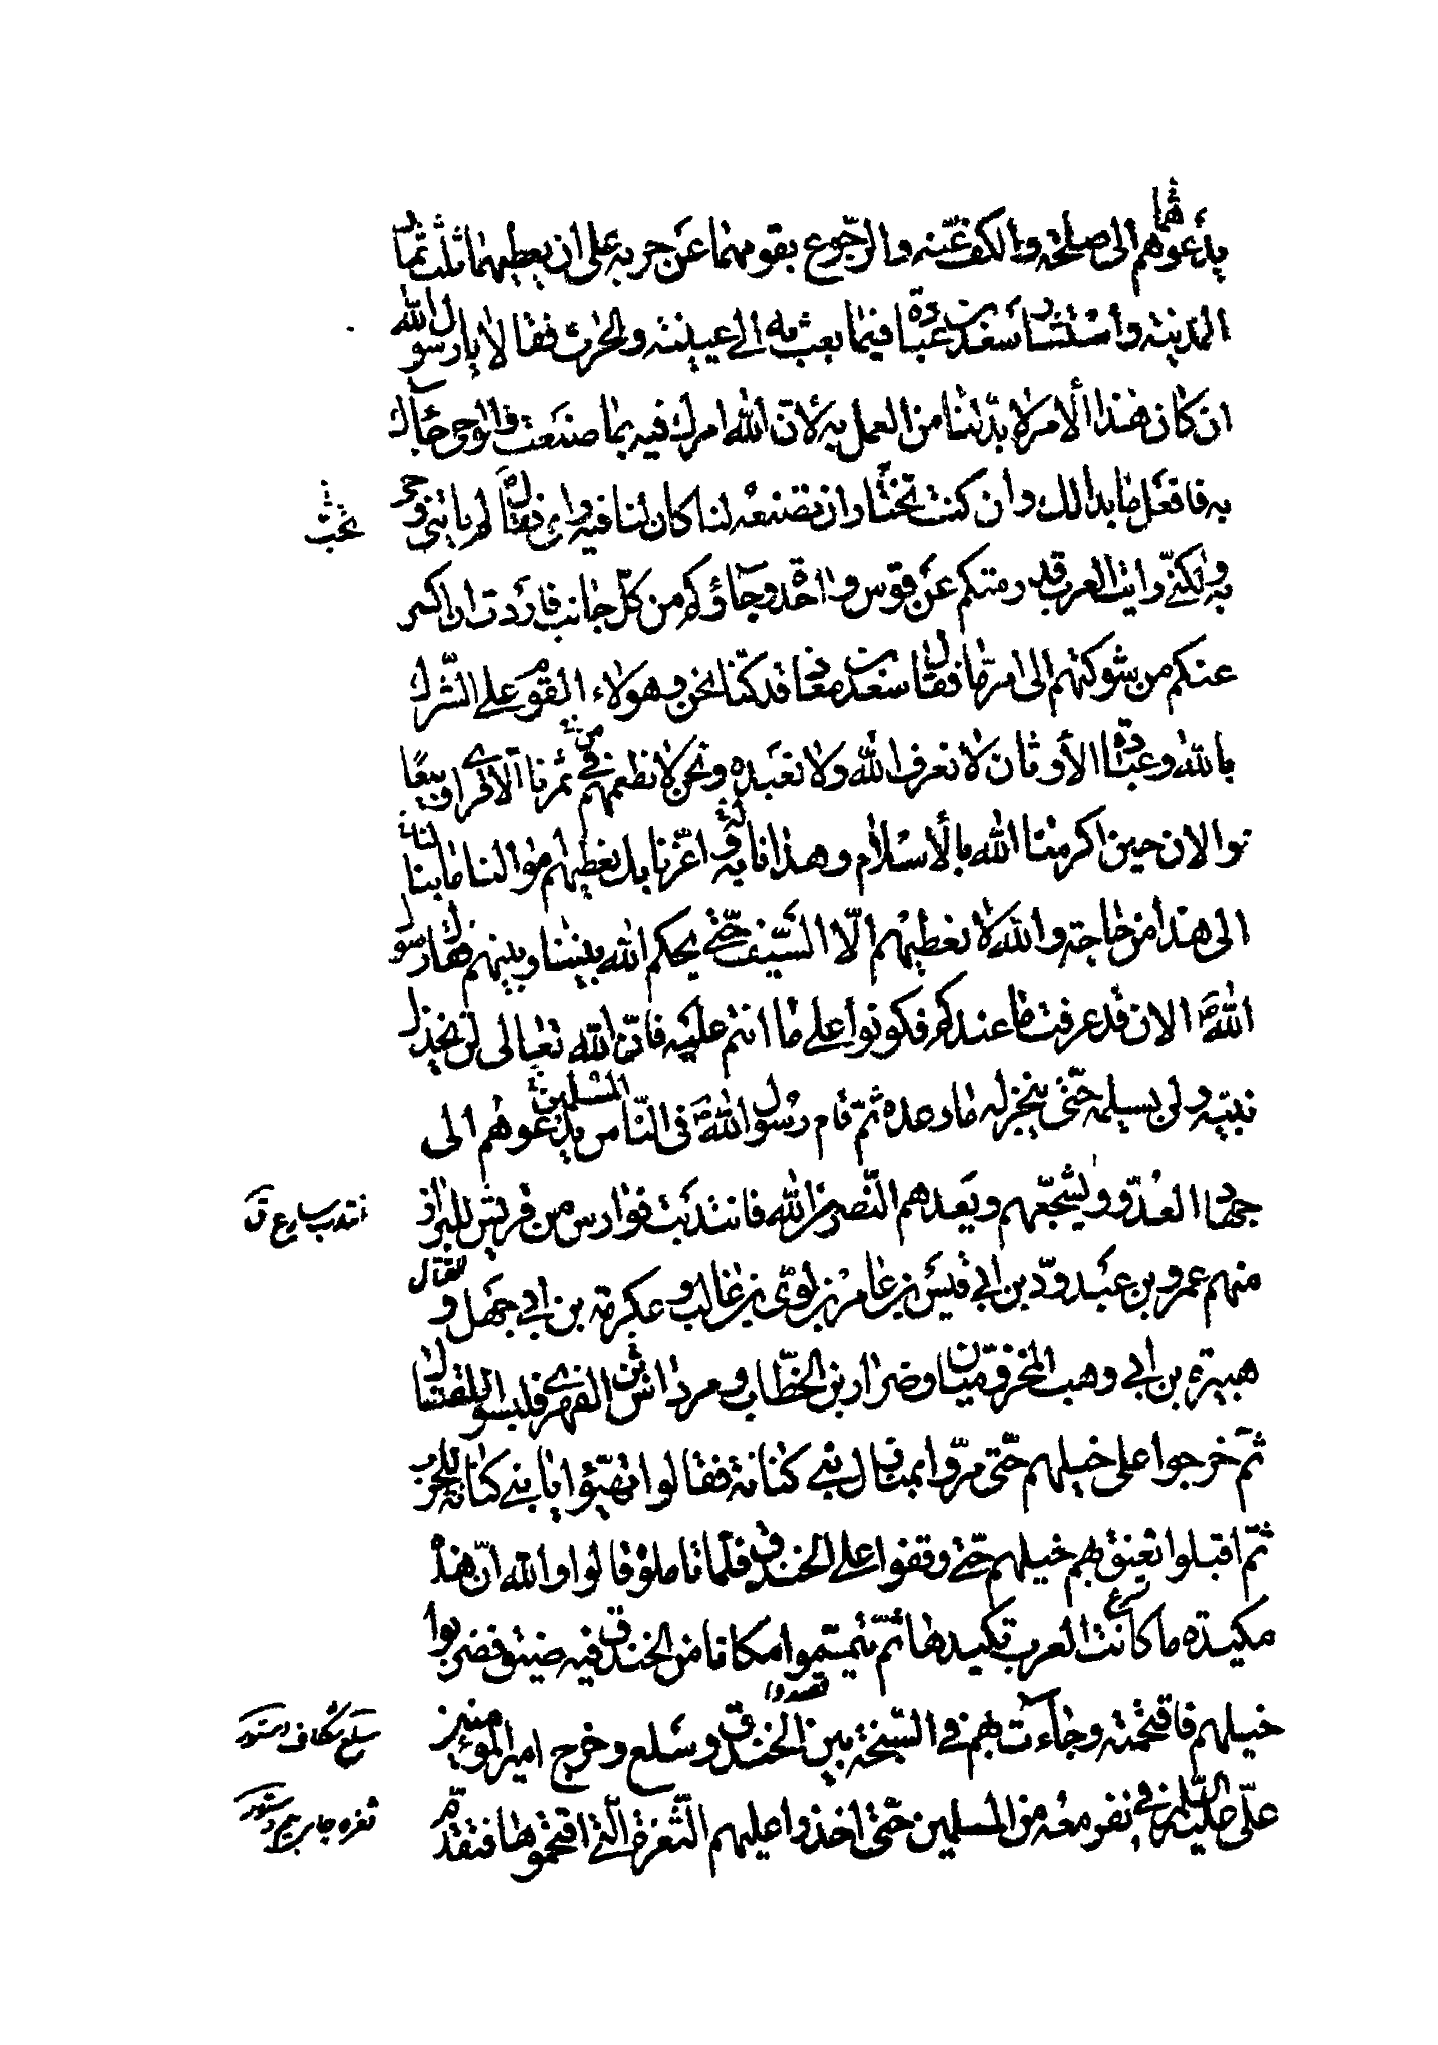 يدعوهما الى صلحه والكف عنه والرجوع بقومهما عن حربه على ان يعطيهما ثلث ثمار
المدينة واستشار سعد بن عبادة فيما بعث به الى عيينة والحرث فقالا يا رسول الله
ان كان هذا الامر لا بد لنا من العمل به لان الله امرك فيه بما صنعت والوحى جاءك
به فافعل ما بدا لك وان كنت تختار ان تصنعه لنا كان لنا فيه راى فقال لم ياتنى وحى
به ولكنى رايت العرب قد رمتكم عن قوس واحدة وجاؤكم من كل جانب فاردت ان اكسر
عنكم من شوكتهم الى امر ما فقال سعد بن معاذ قد كنا نحن وهولاء القوم على الشرك
بالله وعبادة الاوثان لا نعرف الله ولا نعبده ونحن لا نطعمهم من ثمرنا الا قرى او بيعا
نوا الان حين اكرمنا الله بالاسلام وهدانا به واعزنا بك نعطيهم موالنا ما لنا
الى هذا من حاجة والله لا نعطيهم الا السيف حتى يحكم الله بيننا وبينهم فقال رسول
الله ص الان قد عرفت ما عندكم فكونوا على ما انتم عليه فان الله تعالى لن يخذل
نبيه ولن يسلمه حتى ينجز له ما وعده ثم قام رسول الله ص فى الناس المسلمين يدعوهم الى
جهاد العدو ويشجعهم ويعدهم النصر من الله فانتدبت فوارس من قريش للبراز
منهم عمرو بن عبد ود بن ابى قيس بن عامر بن لوى بن غالب وعكرمة بن ابى جهل و
هبيرة بن ابى وهب المخزوميان وضرار بن الخطاب ومرداس الفهرى فلبسوا للقتال
ثم خرجوا على خيلهم حتى مروا بمنازل بنى كنانة فقالوا تهيؤا يا بنى كنانة للحرب
ثم اقبلوا تعنق بهم خيلهم حتى وقفوا على الخندق فلما تاملوه قالوا والله ان هذه
مكيدة ما كانت العرب تكيدها ثم تيمموا مكانا من الخندق فيه ضيق فضربوا
خيلهم فاقتحمته وجاءت بهم فى السبخة بين الخندق وسلع وخرج امير المومنين
على عليه السلم فى نفر معه من المسلمين حتى اخذوا عليهم الثغرة التى اقتحموها فتقدم
تحب
انتدب سارع ق
للقتال
قصدوا
سلع شكاف
ثغره جاى